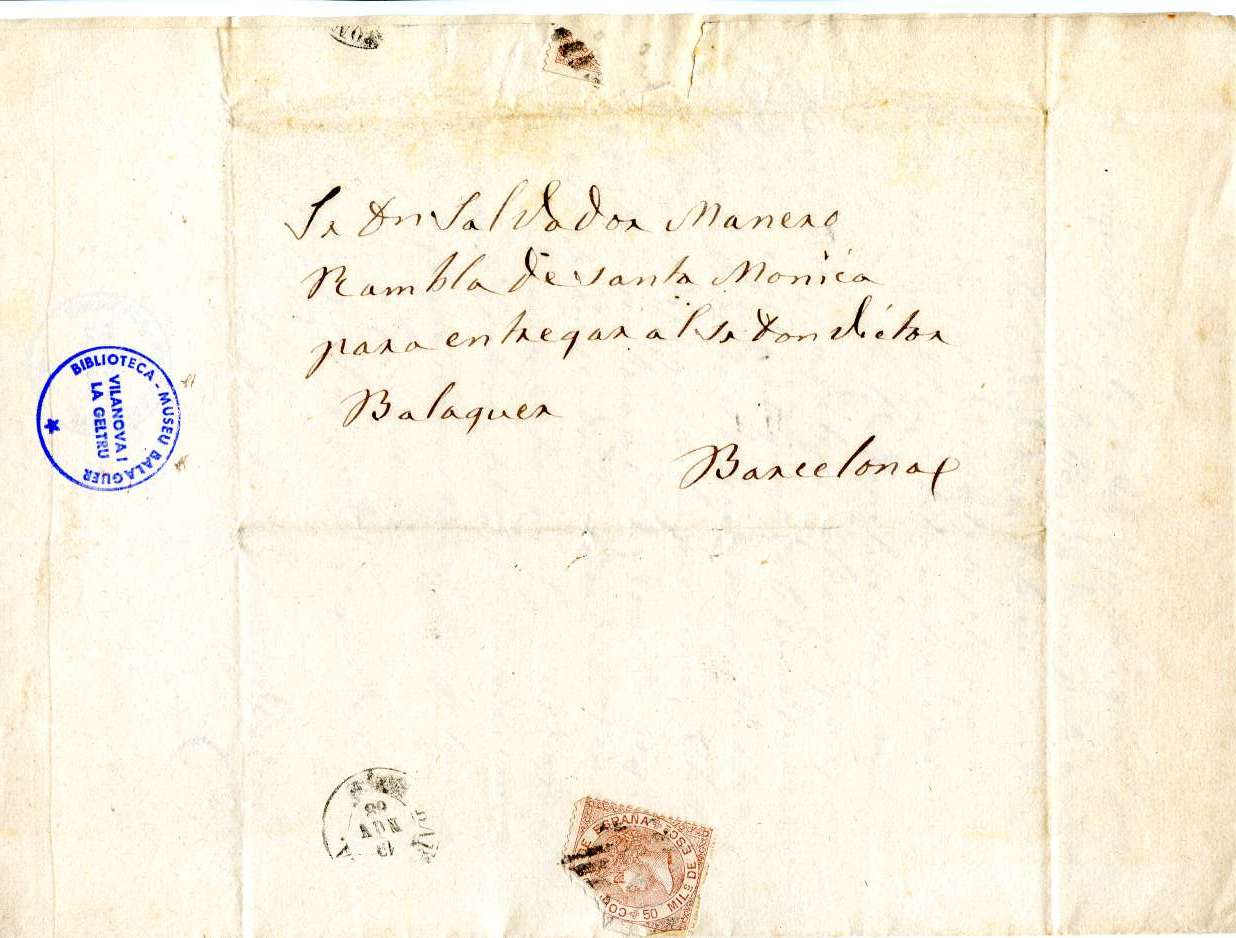 Sr Dn Salvador Manero
Rambla de Santa Monica
para entregar al Sr Don Victor
Balaguer
Barcelona
BIBLIOTECA - MUSEU BALAGUER
VILANOVA I
LA GELTRU
NOV
ESPAÑA
50 MILS DE ESC